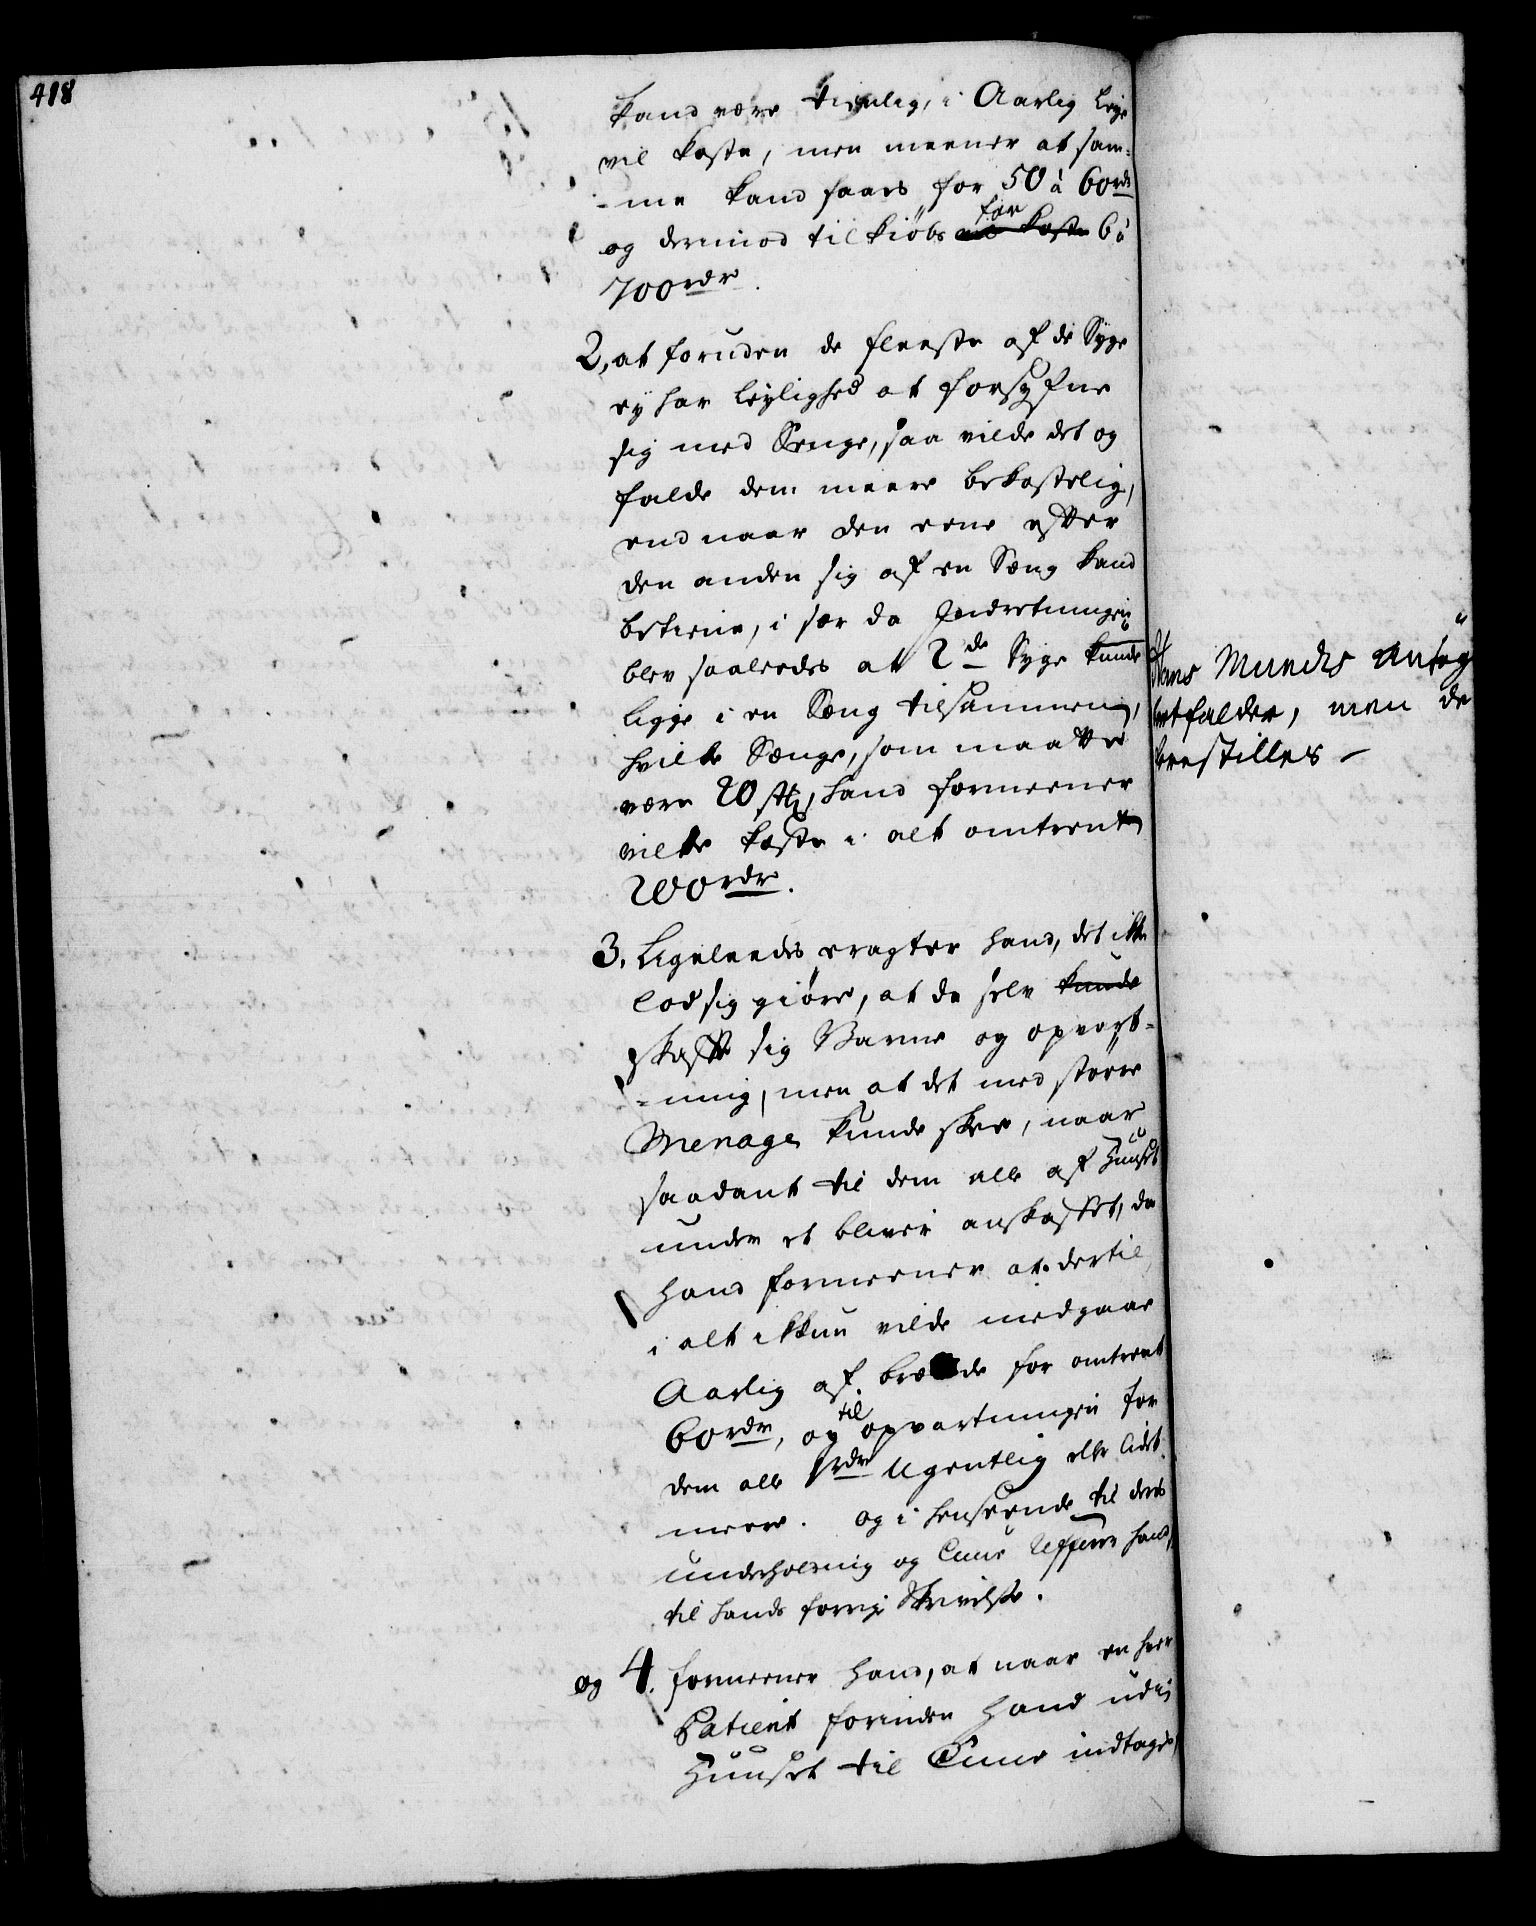 418
kand være tienlig, i Aarlig Leye
vil koste, men meener at sam-
-me kand faaes for 50 à 60 rdr
og derimod til kiøbs for 6 à
700 rdr.
2, at foruden de fleeste af de Syge
ey har leylighed at forsyne
sig med Senge, saa vilde det og
falde dem meere bekostelig,
end naar den eene efter
den anden sig af en Seng kand
betiene, i sær da Indretningen
blev saaledes at 2de Syge kunde
ligge i en Seng tilsammen,
hvilke Senge, som maatte
være 20 st, hand formeener
vilde koste i alt omtrent
200 rdr.
3. Ligeleedes eragter hand, det ikke
lod sig giøre, at de selv kunde
skaffe sig Varme og opvart-
-ning, men at det med større
Menage kunde skee, naar
saadant til dem alle af Huuset
under et bliver anskaffet, da
hand formeener at dertil
i alt ikkun vilde medgaae
Aarlig af brænde for omtrent
60 rdr, og til opvartningen for
dem alle 1 rdr Ugentlig eller lidet
meere. og i henseende til deres
underholdning og Cuur refferer hand,
til hands forrige Skrivelse.
og 4. formeener hand, at naar en hver
Patient forinden hand udi
Huuset til Cuur indtages,
Hans Munchs Ansøg
bortfalder, men de